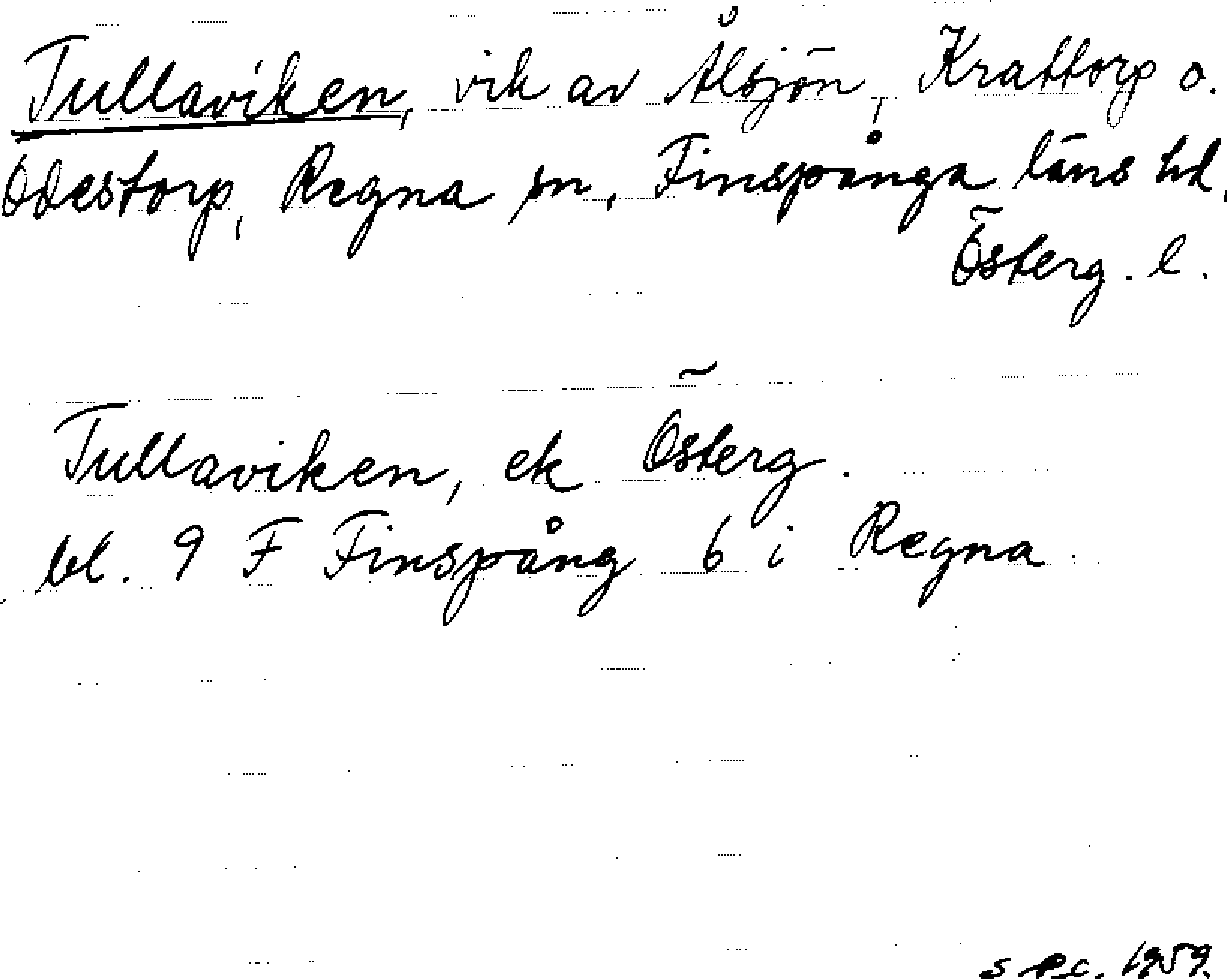 Tullaviken, vik av Ålsjön, Krattorp o.
Odestorp, Regna sn, Finspånga läns hd,
Österg. l.
Tullaviken, ek Österg.
bl. 9 F Finspång 6 i Regna
1959.